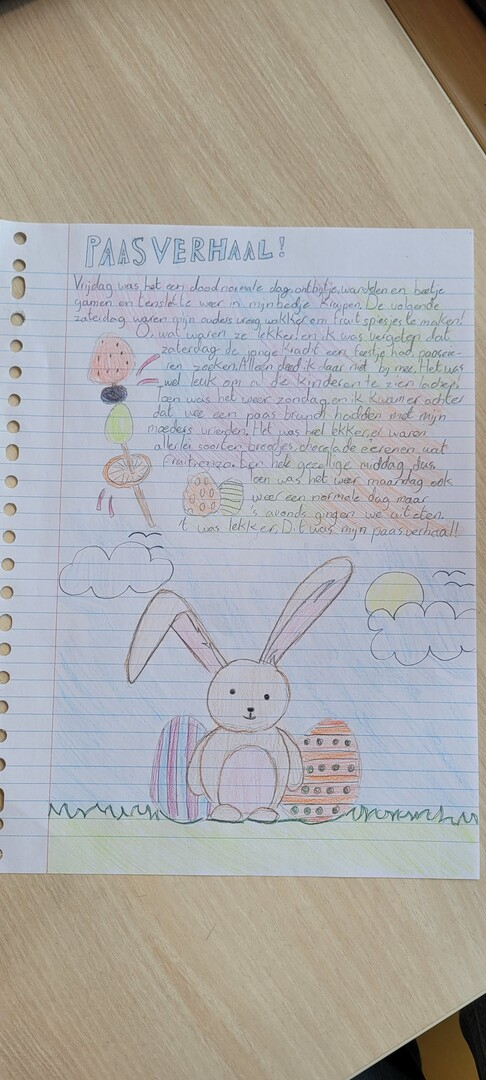 PAASVERHAAL!
Vrijdag was het een doodnormale dag, ontbijtje, wandelen en beetje
gamen en tenslotte weer in mijn bedje kruipen. De volgende
zaterdag waren mijn ouders vroeg wakker om fruit spiesjes te maken!
O, wat waren ze lekker! en ik was vergeten dat
zaterdag de jonge kracht een feestje had, paaseie-
ren zoeken. Alleen deed ik daar niet bij mee. Het was
wel leuk om al de kinderen te zien
Toen was het weer zondag, en ik kwam er achter
dat we een paas brunch hadden met mijn
moeders vrienden! Het was heel lekker, er waren
allerlei soorten broodjes, chocolade eieren en wat
fruit enzo. Een hele gezellige middag dus.
Toen was het weer maandag ook
weer een normale dag maar
's avonds gingen we uiteten.
't was lekker. Dit was mijn paasverhaal!